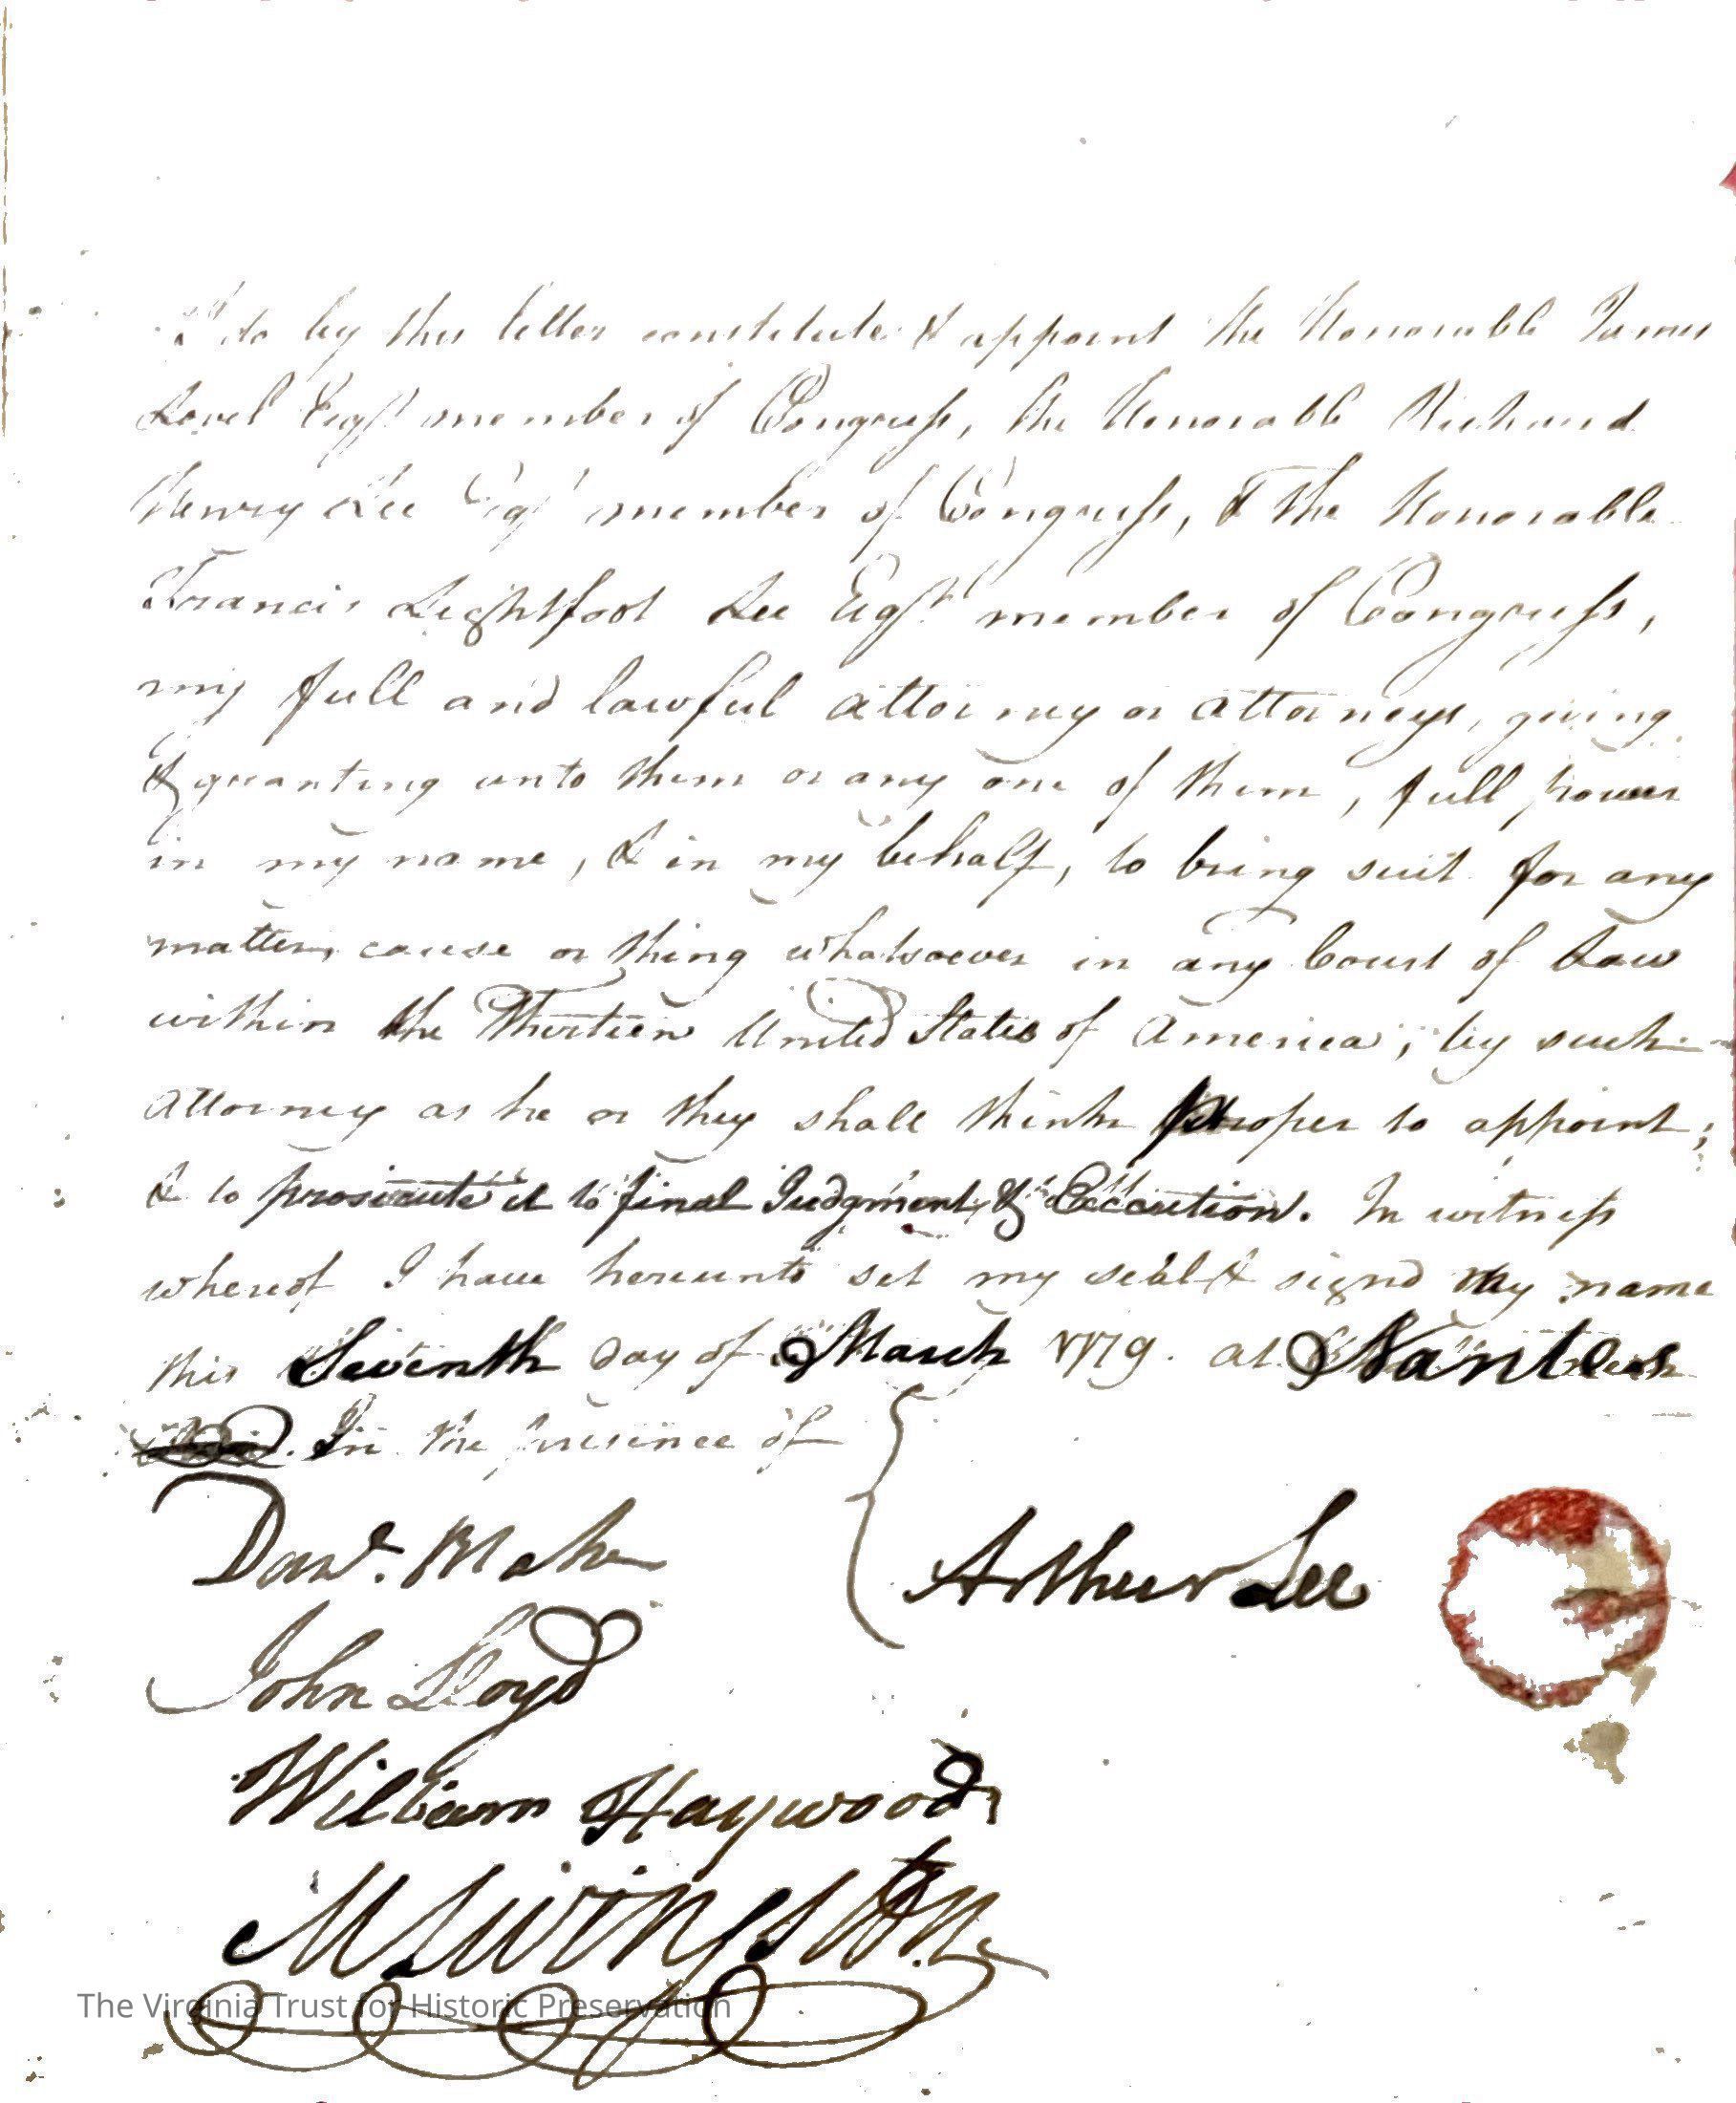 I do by this letter constitute & appoint the Honorable James
Lovel Esqr. member of Congress, the Honorable Richard
Henry Lee Esqr member of Congress, & the Honorable
Francis Lightfoot Lee Esqr. member of Congress,
my full and lawful attorney or attorneys, giving
& granting unto them or any one of them, full power
in my name, & in my behalf, to bring suit for any
matter, cause or thing whatsoever in any Court of Law
within the Thirteen United States of America; by such
attorney as he or they shall think proper to appoint;
& to prosecute it to final Judgment, & Execution. In witness
whereof I have hereunto set my seal & signd my name
this Seventh day of March 1779. at Nantes
In the presence of
Danl. Blake
Arthur Lee
John Lloyd
William Haywood
M Livingston
The Virginia Trust for Historic Preservation